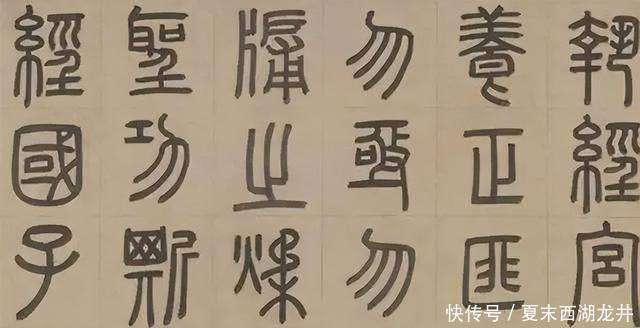 執經宮
養正匪
勿亟勿
牖之
聖功斯
經國子
快传号/夏末西湖龙井